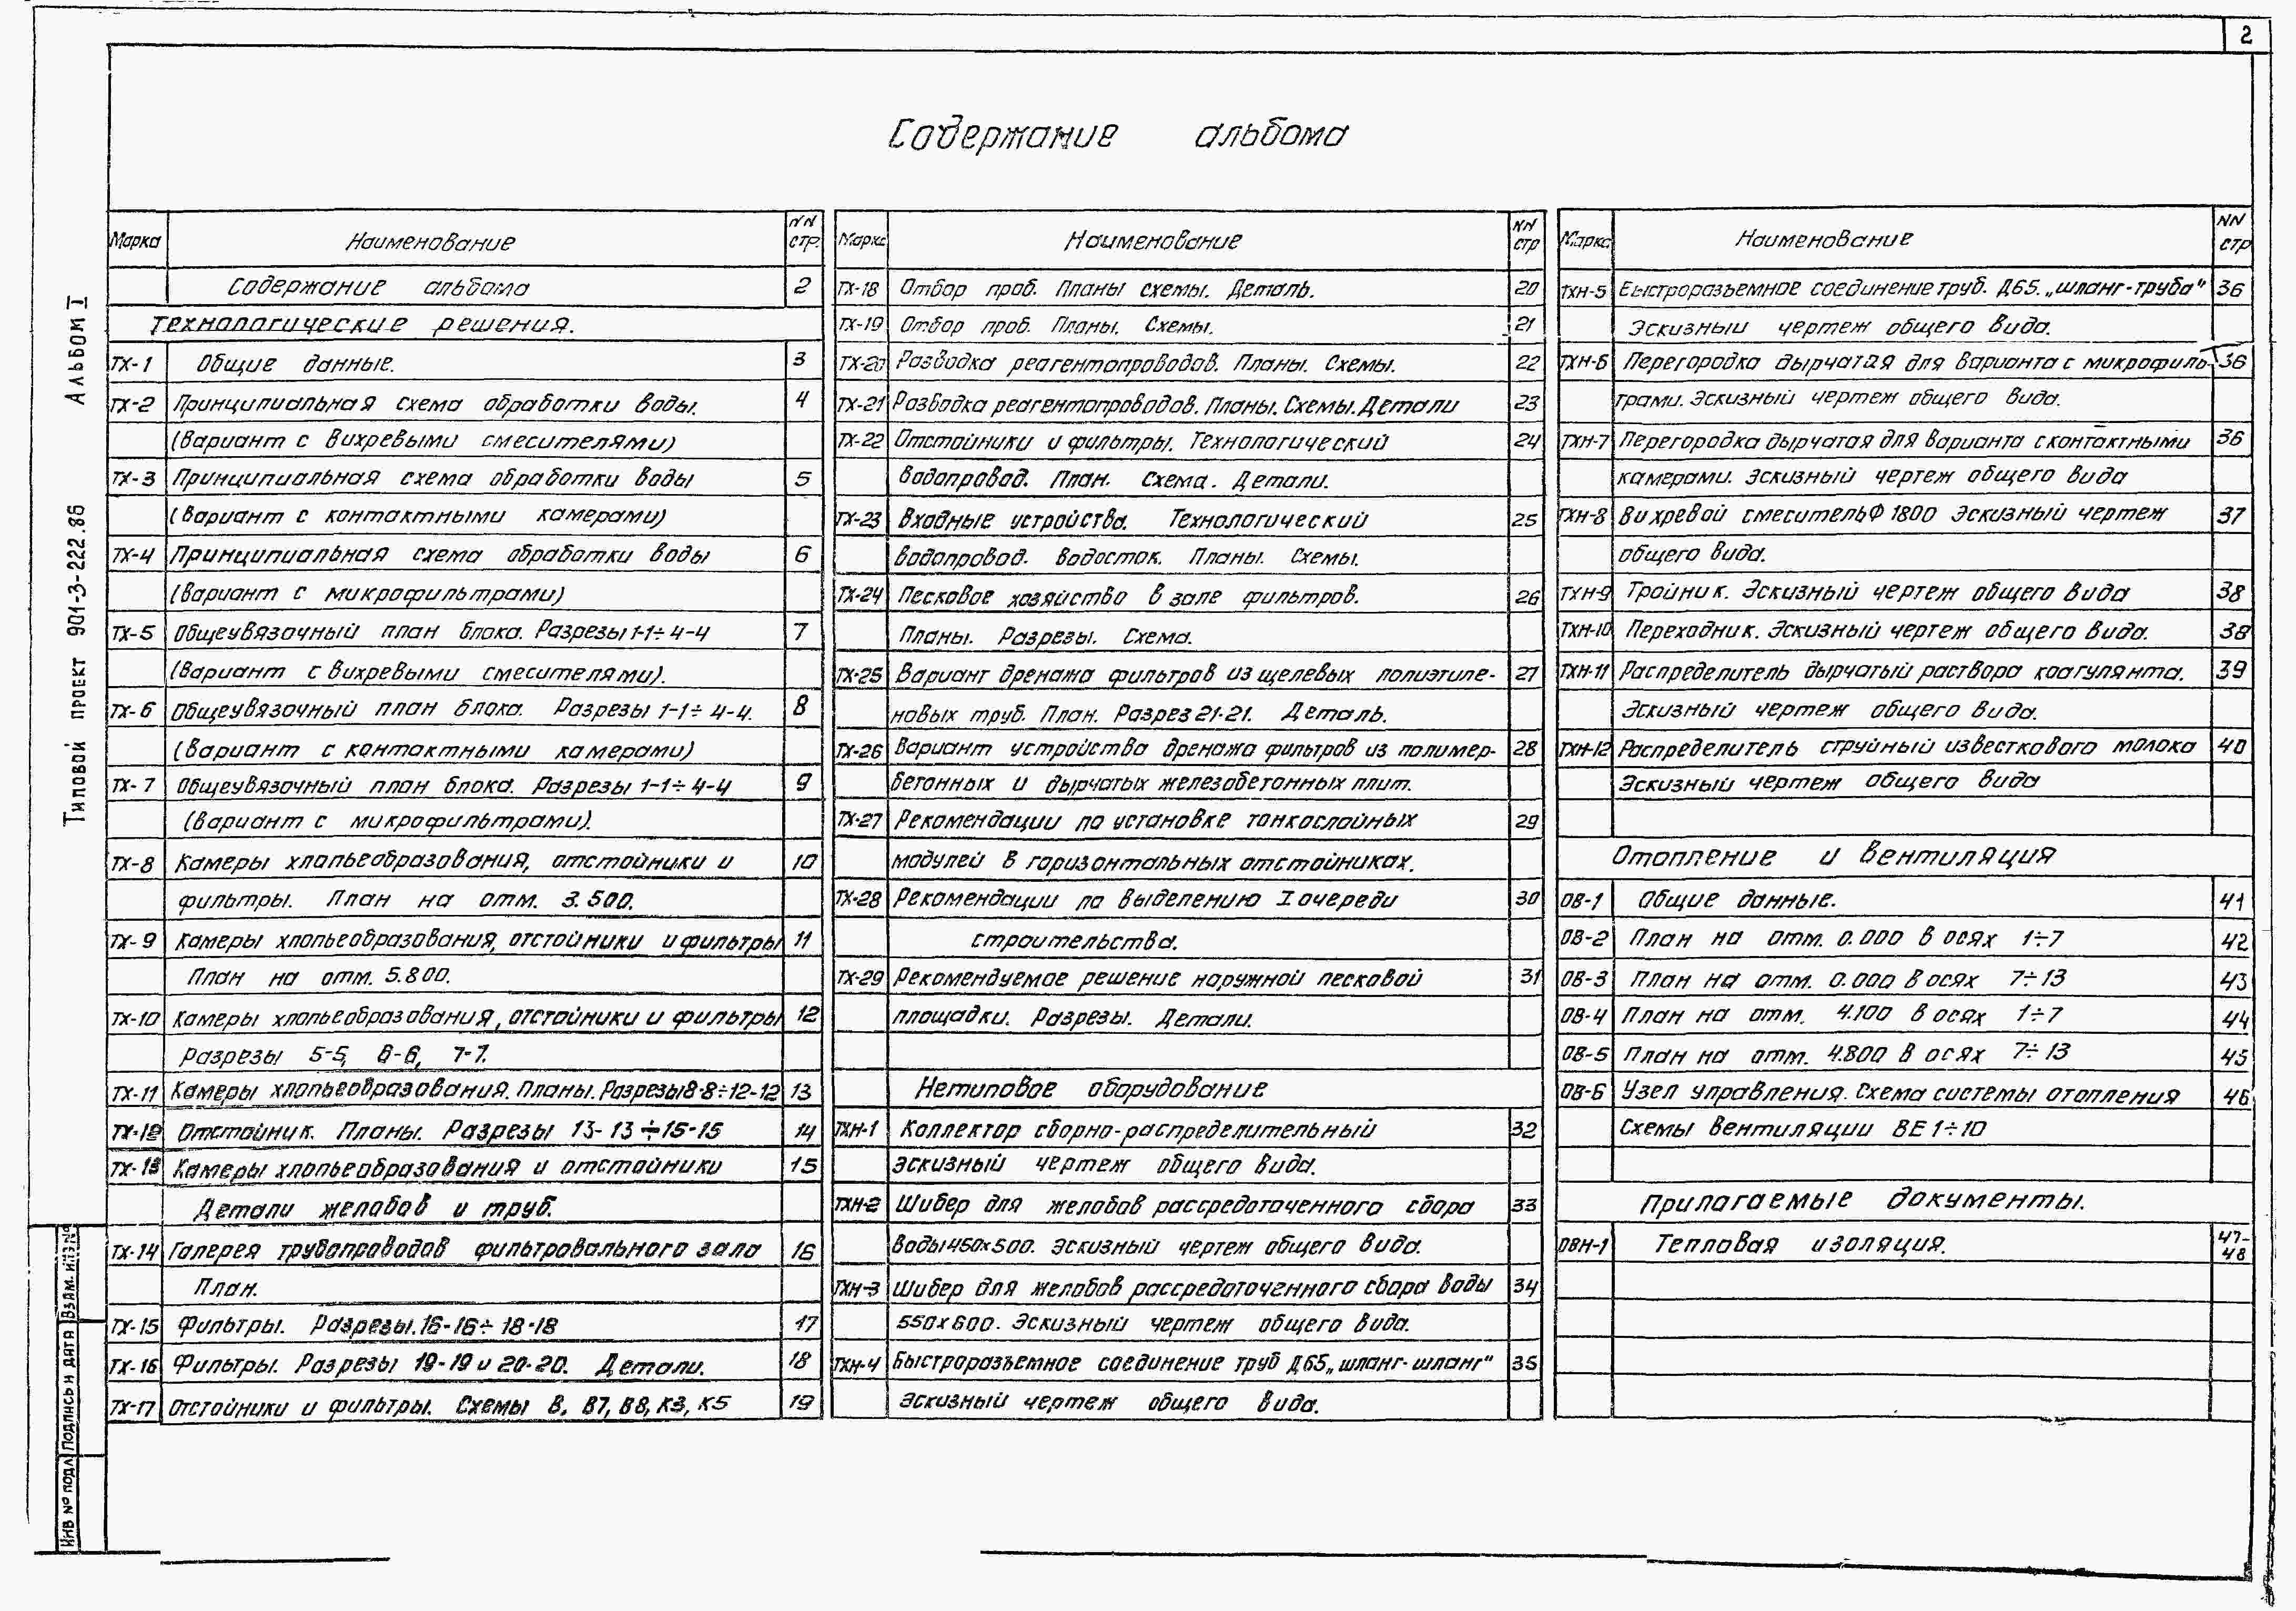 2
Содержание альбома
Альбом I
Типовой проект 901-3-222.86
Взам. инв №
Подпись и дата
Инв № подл
Марка Наименование NN стр.
Содержание альбома 2
Технологические решения.
ТХ-1 Общие данные. 3
ТХ-2 Принципиальная схема обработки воды. 4
(Вариант с вихревыми смесителями)
ТХ-3 Принципиальная схема обработки воды 5
(вариант с контактными камерами)
ТХ-4 Принципиальная схема обработки воды 6
(вариант с микрофильтрами)
ТХ-5 Общеувязочный план блока. Разрезы 1-1÷4-4 7
(Вариант с вихревыми смесителями).
ТХ-6 Общеувязочный план блока. Разрезы 1-1÷4-4. 8
(Вариант с контактными камерами)
ТХ-7 Общеувязочный план блока. Разрезы 1-1÷4-4 9
(Вариант с микрофильтрами).
ТХ-8 Камеры хлопьеобразования, отстойники и 10
фильтры. План на отм. 3.500.
ТХ-9 Камеры хлопьеобразования, отстойники и фильтры 11
План на отм. 5.800.
ТХ-10 Камеры хлопьеобразования, отстойники и фильтры 12
Разрезы 5-5, 6-6, 7-7.
ТХ-11 Камеры хлопьеобразования. Планы. Разрезы 8-8÷12-12 13
ТХ-12 Отстойник. Планы. Разрезы 13-13÷15-15 14
ТХ-13 Камеры хлопьеобразования и отстойники 15
Детали желобов и труб.
ТХ-14 Галерея трубопроводов фильтровального зала 16
План.
ТХ-15 Фильтры. Разрезы. 16-16÷18-18 17
ТХ-16 Фильтры. Разрезы 19-19 и 20-20. Детали. 18
ТХ-17 Отстойники и фильтры. Схемы В, В7, В8, К3, К5 19
Марка Наименование NN стр
ТХ-18 Отбор проб. Планы схемы. Деталь. 20
ТХ-19 Отбор проб. Планы. Схемы. 21
ТХ-20 Разводка реагентопроводов. Планы. Схемы. 22
ТХ-21 Разводка реагентопроводов. Планы. Схемы. Детали 23
ТХ-22 Отстойники и фильтры. Технологический 24
водопровод. План. Схема. Детали.
ТХ-23 Входные устройства. Технологический 25
водопровод. Водосток. Планы. Схемы.
ТХ-24 Песковое хозяйство в зале фильтров. 26
Планы. Разрезы. Схема.
ТХ-25 Вариант дренажа фильтров из щелевых полиэтиле- 27
новых труб. План. Разрез 21-21. Деталь.
ТХ-26 Вариант устройства дренажа фильтров из полимер- 28
бетонных и дырчатых железобетонных плит.
ТХ-27 Рекомендации по установке тонкослойных 29
модулей в горизонтальных отстойниках.
ТХ-28 Рекомендации по выделению I очереди 30
строительства.
ТХ-29 Рекомендуемое решение наружной песковой 31
площадки. Разрезы. Детали.
Нетиповое оборудование
ТХН-1 Коллектор сборно-распределительный 32
эскизный чертеж общего вида.
ТХН-2 Шибер для желобов рассредоточенного сбора 33
воды 450х500. Эскизный чертеж общего вида.
ТХН-3 Шибер для желобов рассредоточенного сбора воды 34
550х600. Эскизный чертеж общего вида.
ТХН-4 Быстроразъемное соединение труб Д65 „шланг-шланг" 35
Эскизный чертеж общего вида.
Марка Наименование NN стр
ТХН-5 Быстроразъемное соединение труб. Д65. „шланг-труба" 36
Эскизный чертеж общего вида.
ТХН-6 Перегородка дырчатая для варианта с микрофиль- 36
трами. Эскизный чертеж общего вида.
ТХН-7 Перегородка дырчатая для варианта с контактными 36
камерами. Эскизный чертеж общего вида
ТХН-8 Вихревой смеситель Ф 1800 Эскизный чертеж 37
общего вида.
ТХН-9 Тройник. Эскизный чертеж общего вида 38
ТХН-10 Переходник. Эскизный чертеж общего вида. 38
ТХН-11 Распределитель дырчатый раствора коагулянта. 39
Эскизный чертеж общего вида.
ТХН-12 Распределитель струйный известкового молока 40
Эскизный чертеж общего вида
Отопление и вентиляция
ОВ-1 Общие данные. 41
ОВ-2 План на отм. 0.000 в осях 1÷7 42
ОВ-3 План на отм. 0.000 в осях 7÷13 43
ОВ-4 План на отм. 4.100 в осях 1÷7 44
ОВ-5 План на отм. 4.800 в осях 7÷13 45
ОВ-6 Узел управления. Схема системы отопления 46
Схемы вентиляции ВЕ1÷10
Прилагаемые документы.
ОВН-1 Тепловая изоляция. 47-48